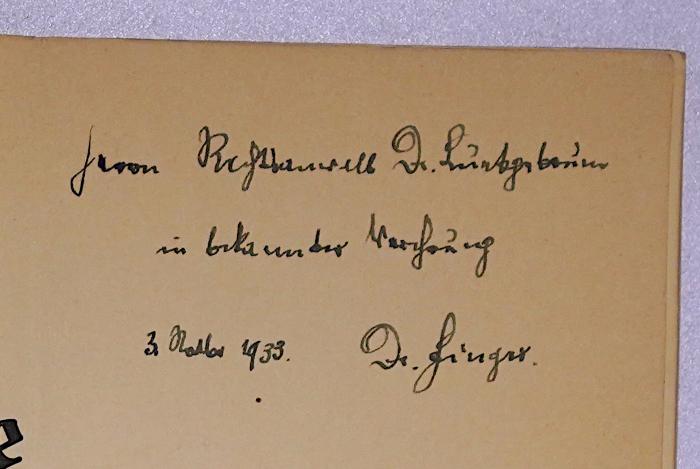 Herrn Rechtsanwalt Dr. Luetgebrune
in bekannter Verehrung
3. Novbr 1933. Dr. Finger.
e